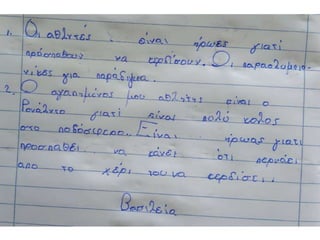 1. Οι αθλητές είναι ήρωες γιατί
πρόσπαθουν να κερδίσουν. Οι παραολυμπιο-
νίκες για παράδιγμα.
2. Ο αγαπημένος μου αθλητής είναι ο
Ρονάλντο γιατί είναι πολύ καλος
στο ποδόσφερο. Είναι ήρωας γιατι
προσπαθεί να κάνει ότι περνάει
απο το χέρι του να κερδίσει.
Βασιλεία